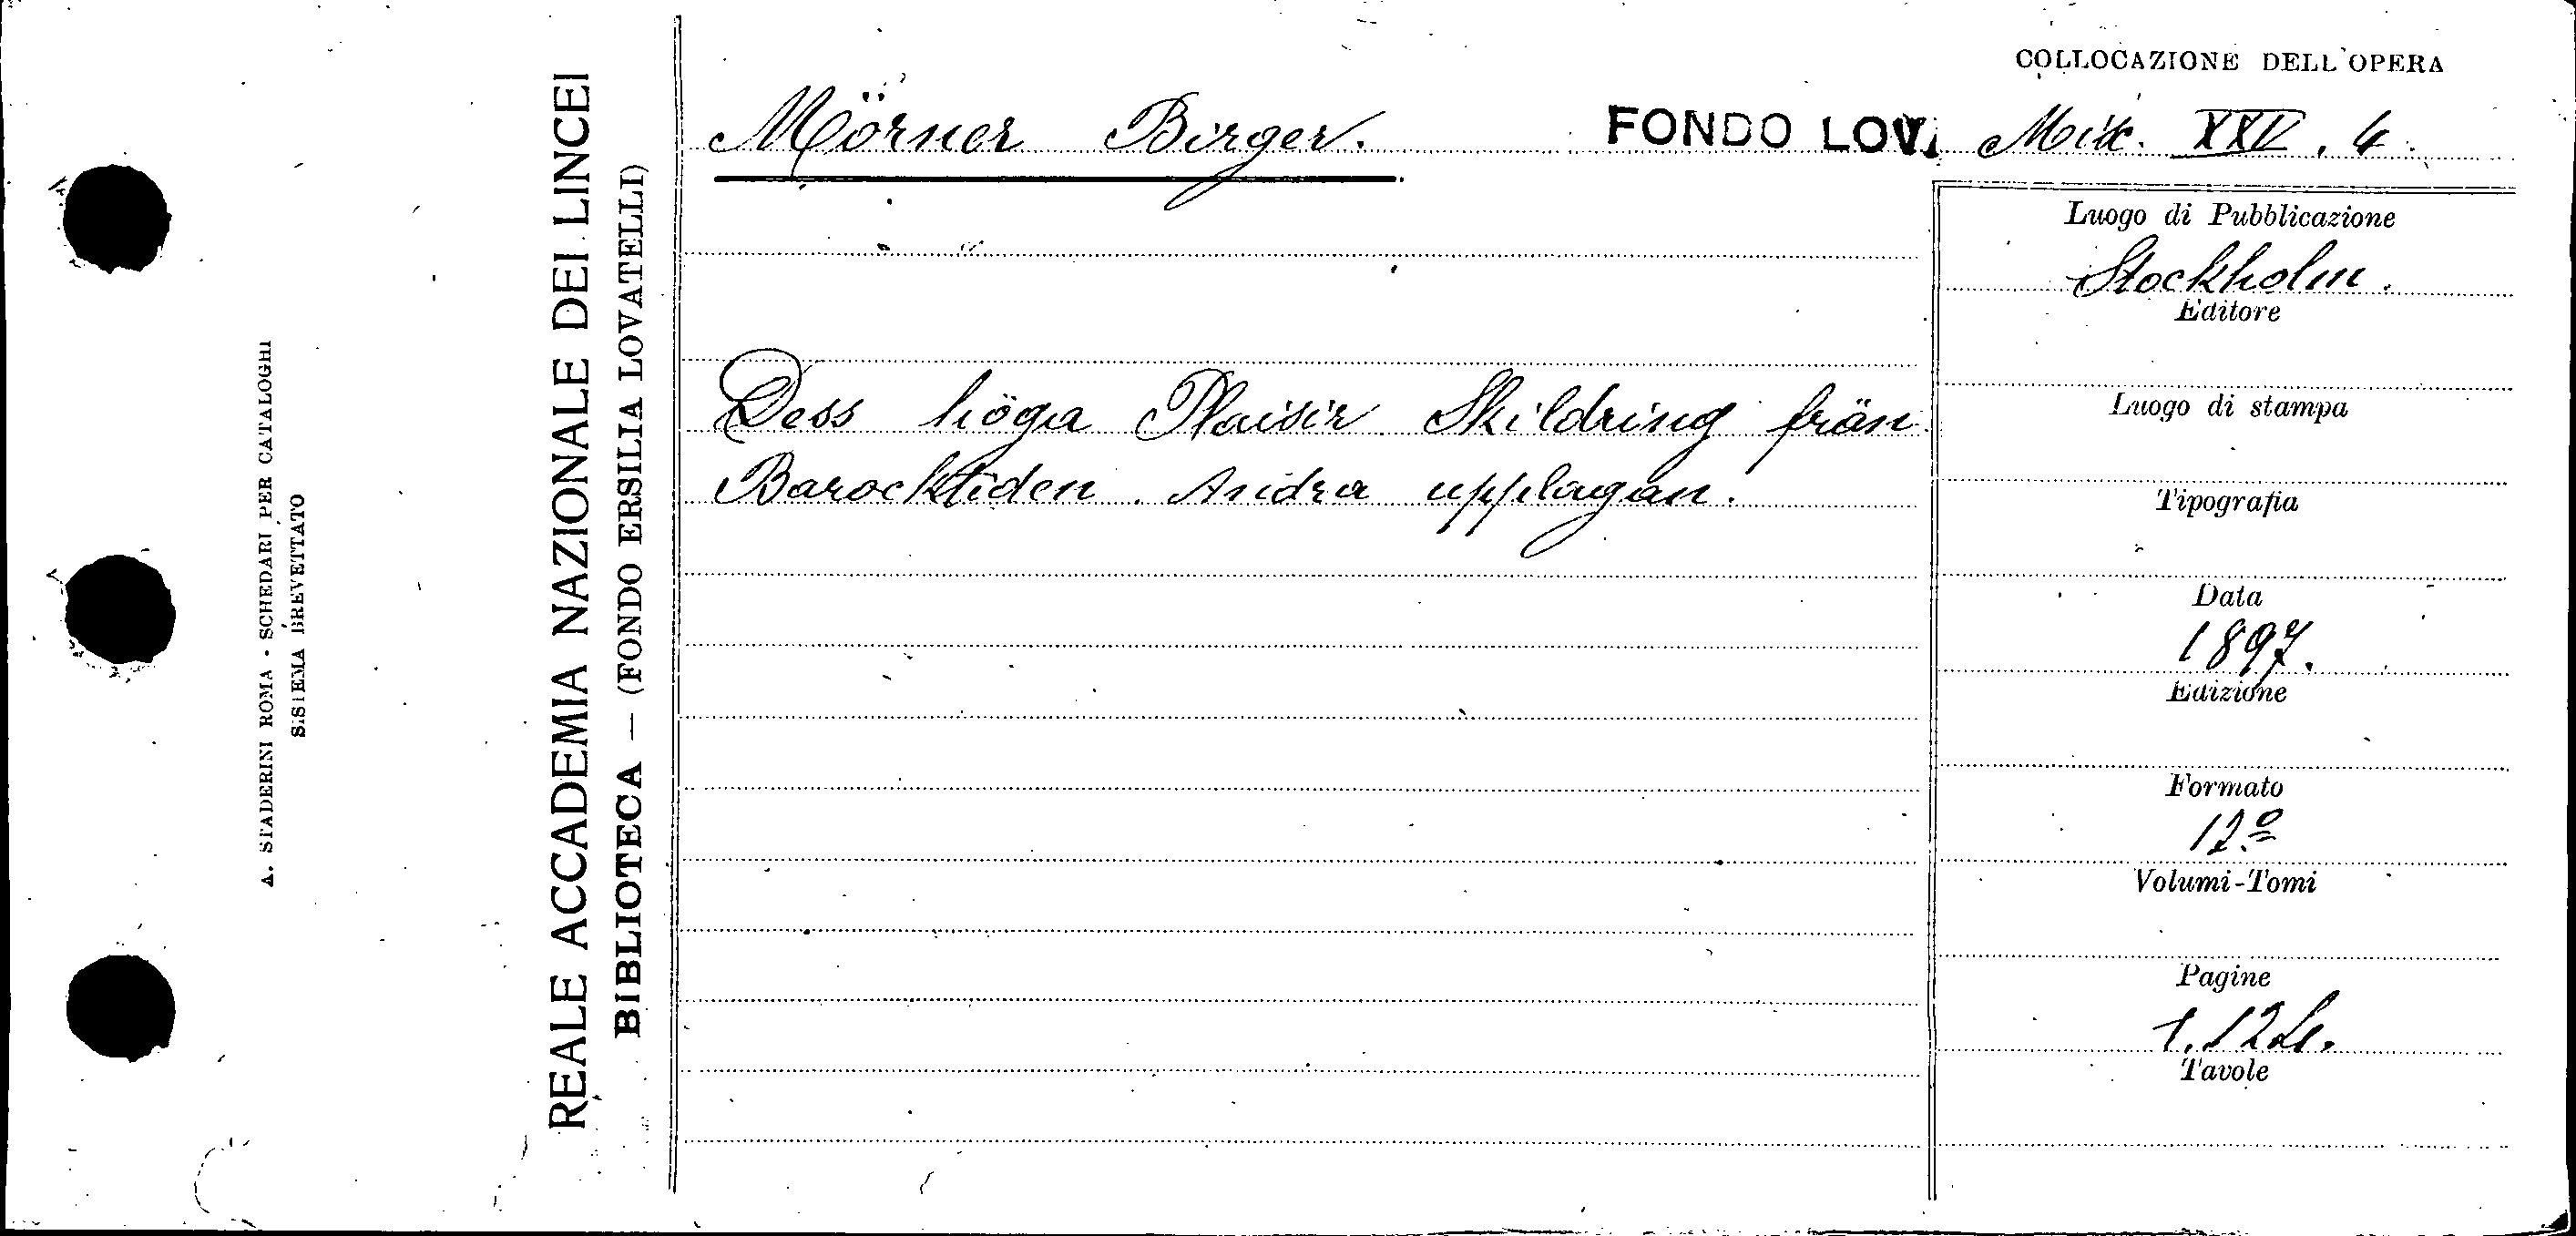 COLLOCAZIONE DELL'OPERA
Mörner Birger. FONDO LOV. XXV, 4.
Luogo di Pubblicazione
Stockholm.
Editore
Dess höga Plaisir Skildring från
Barocktiden. Andra upplagan.
Luogo di stampa
Tipografia
Data
1897.
Edizione
Formato
12º
Volumi-Tomi
Pagine
Tavole
REALE ACCADEMIA NAZIONALE DEI LINCEI
BIBLIOTECA — (FONDO ERSILIA LOVATELLI)
A. STADERINI ROMA - SCHEDARI PER CATALOGHI
SISTEMA BREVETTATO